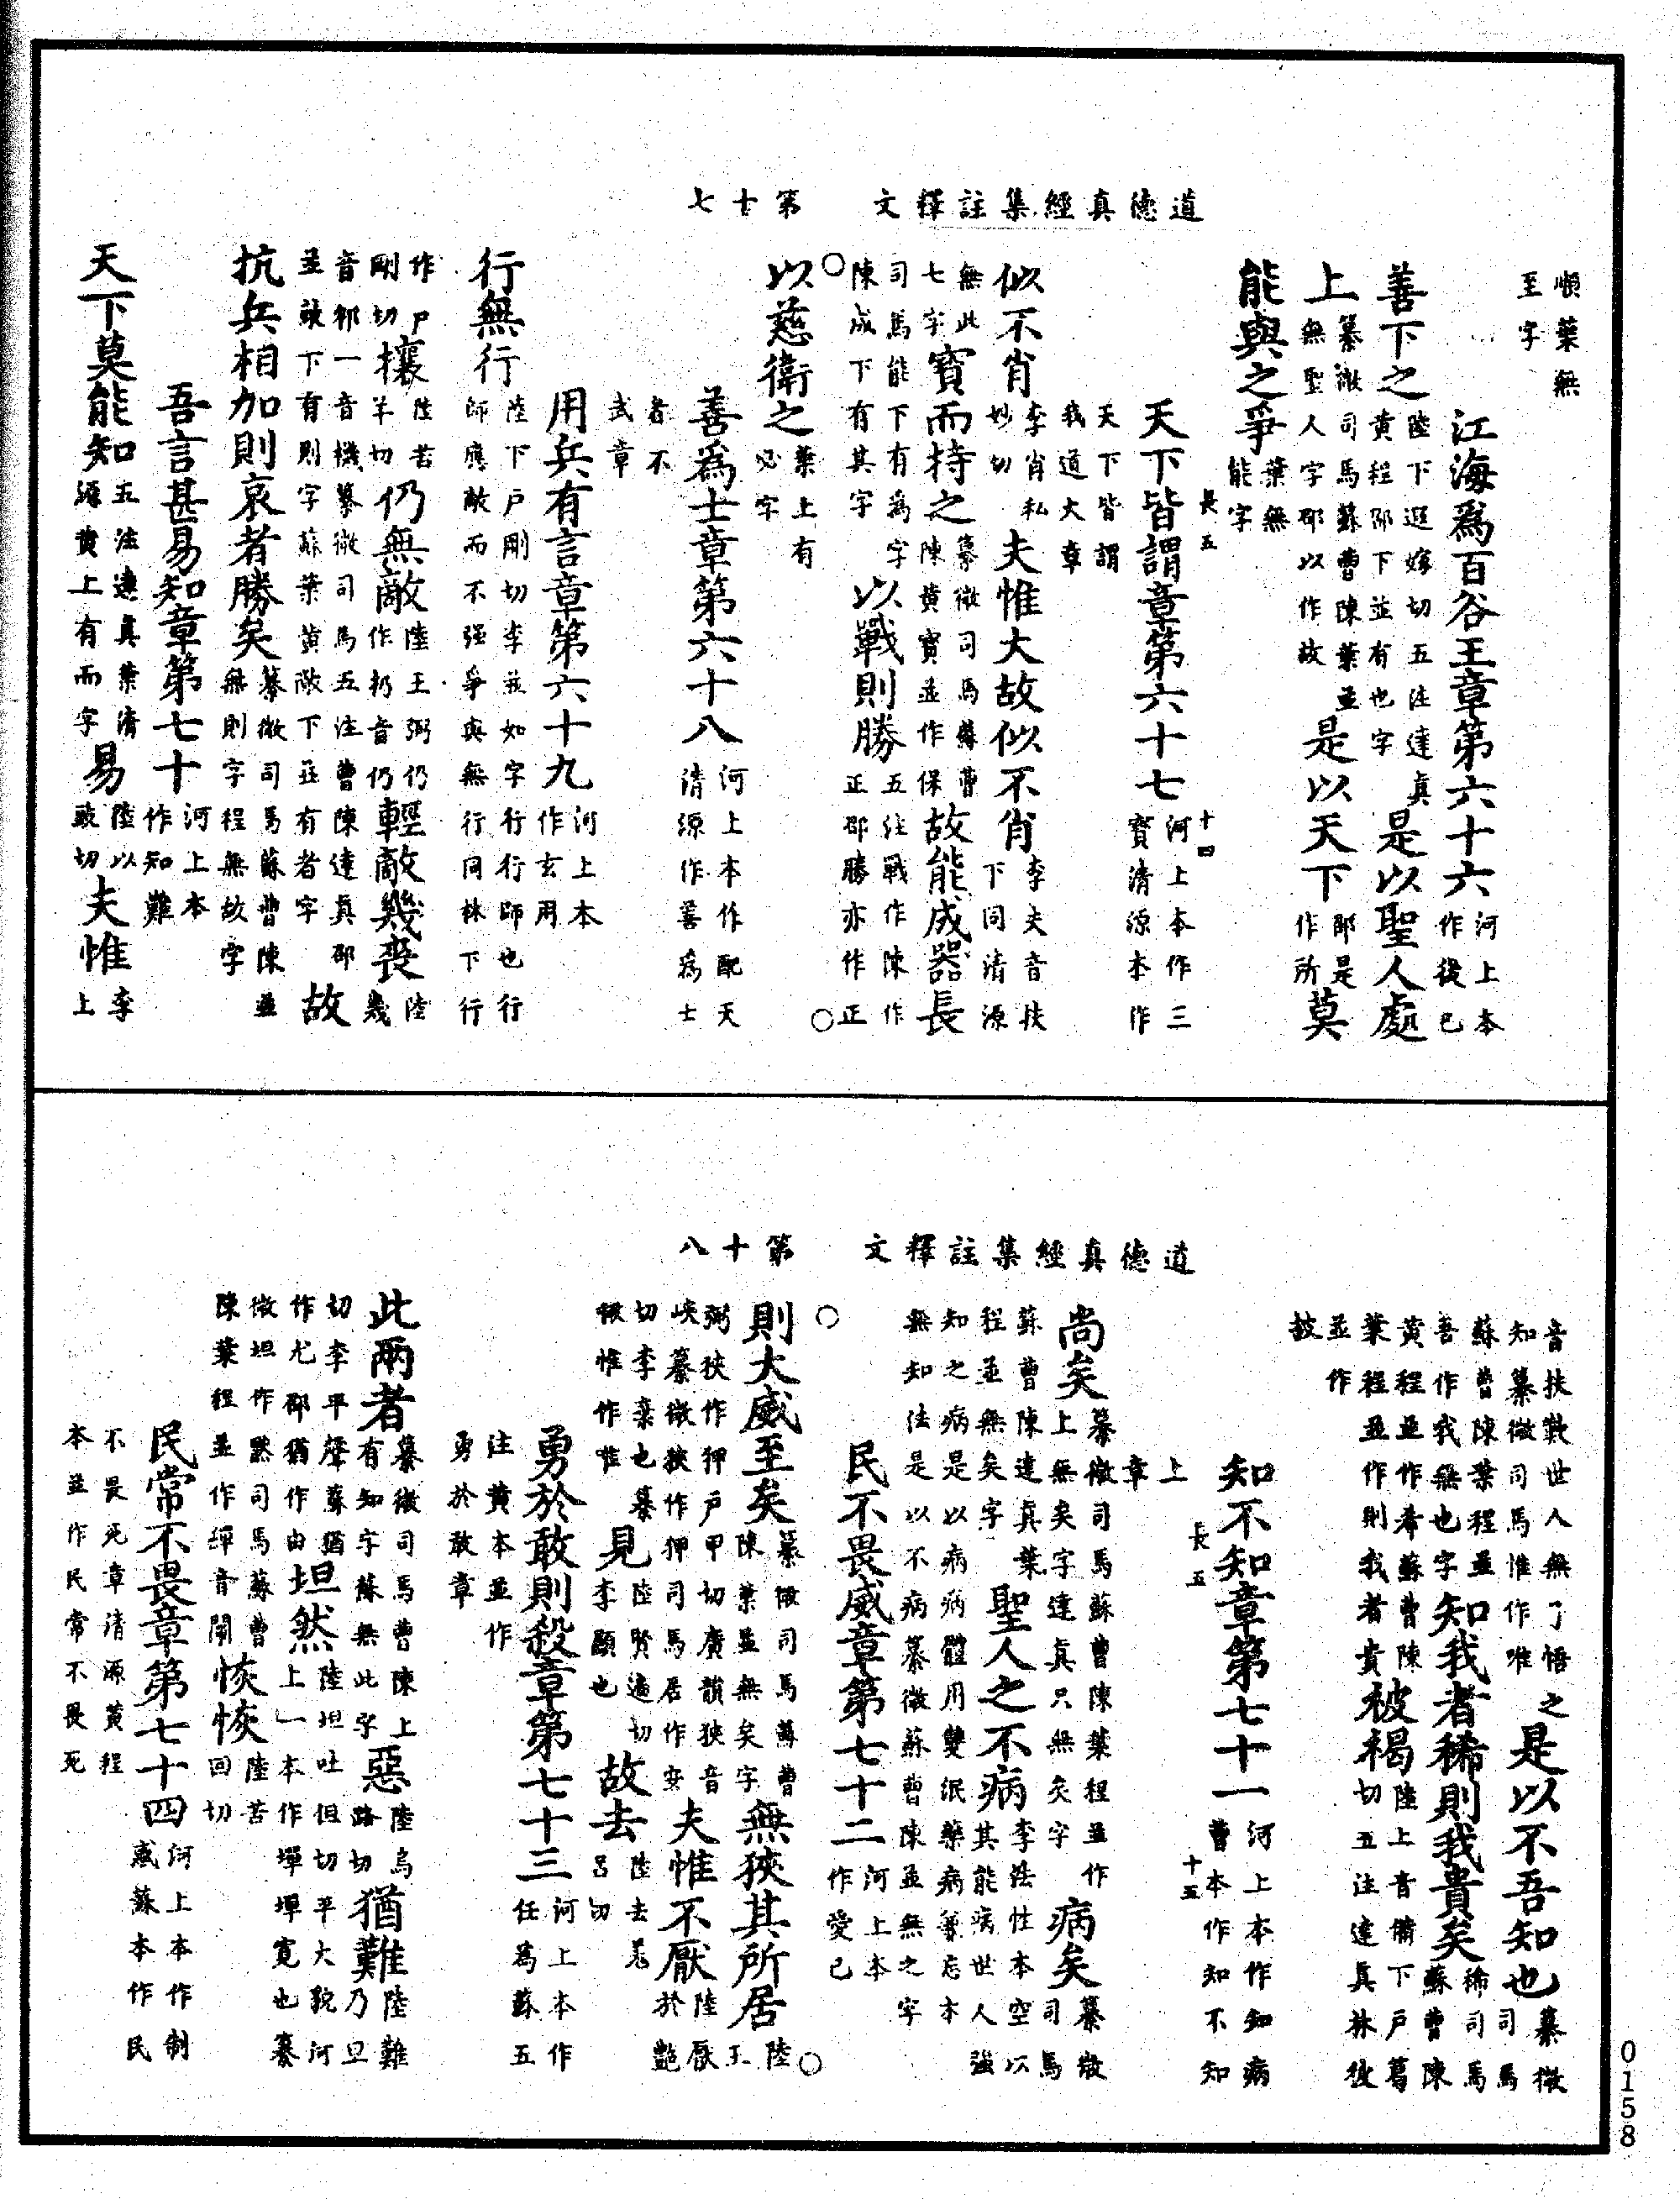 道德真經集註釋文　第十七
順葉無
至字
江海爲百谷王章第六十六河上本作後已
善下之陸下遐嫁切五注達真黃程邵下並有也字是以聖人處
上纂微司馬蘇曹陳葉並無聖人字邵以作故是以天下邵是作所莫
能與之爭葉無能字
長五　十四
天下皆謂章第六十七河上本作三寶清源本作
天下皆謂我道大章
似不肖李肖私妙切夫惟大故似不肖李夫音扶下同清源
無此七字寶而持之纂微司馬蘇曹陳黃寶並作保故能成器長
司馬能下有爲字陳成下有其字以戰則勝五注戰作陳作正邵勝亦作正
○○
以慈衛之葉上有必字
善爲士章第六十八河上本作配天清源作善爲士
者不武章
用兵有言章第六十九河上本作玄用
行無行陸下户剛切李並如字行行師也行師應敵而不强爭與無行行同林下行
作户剛切攘陸若羊切仍無敵陸王弼仍作扔音仍輕敵幾喪陸幾
音邾一音機纂微司馬五注曹陳達真邵並疎下有則字蘇葉黃敵下並有者字故
抗兵相加則哀者勝矣纂微司馬蘇曹陳並無則字程無故字
吾言甚易知章第七十河上本作知難
天下莫能知五注達真葉清源黃上有而字易陸以豉切夫惟李上
道德真經集註釋文　第十八
音扶歎世人無了悟之知纂微司馬惟作唯是以不吾知也纂微司馬
蘇曹陳葉程並吾作我無也字知我者稀則我貴矣稀司馬蘇曹陳
黃程並作希蘇曹陳葉程並作則我者貴被褐陸上音備下户葛切五注達真林彼
並作被
長五　十五
知不知章第七十一河上本作知病曹本作知不知
上章
尚矣纂微司馬蘇曹陳葉程並作上無矣字達真只無矣字病矣纂微司馬
蘇曹陳達真葉程並無矣字聖人之不病李法性本空以其能病世人强
知之病是以病病體用雙泯藥病等忘本無知法是以不病纂微蘇曹陳並無之字
民不畏威章第七十二河上本作愛己
○○
則大威至矣纂微司馬蘇曹陳葉並無矣字無狹其所居陸王
弼狹作狎户甲切廣韻狹音峽纂微狹作狎司馬居作安夫惟不厭陸厭於豔
切李棄也纂微惟作唯見陸賢遍切李顯也故去陸去羌呂切
勇於敢則殺章第七十三河上本作任爲蘇五
注黃本並作勇於敢章
此兩者纂微司馬曹陳上有知字蘇無此字惡陸烏路切猶難陸難乃旦
切李平聲蘇猶作尤邵猶作由坦然陸坦吐但切平大貌河上一本作墠墠寬也纂
微坦作默司馬蘇曹陳葉程並作繟音闡恢恢陸苦回切
民常不畏章第七十四河上本作制惑蘇本作民
不畏死章清源黃程本並作民常不畏死
0158